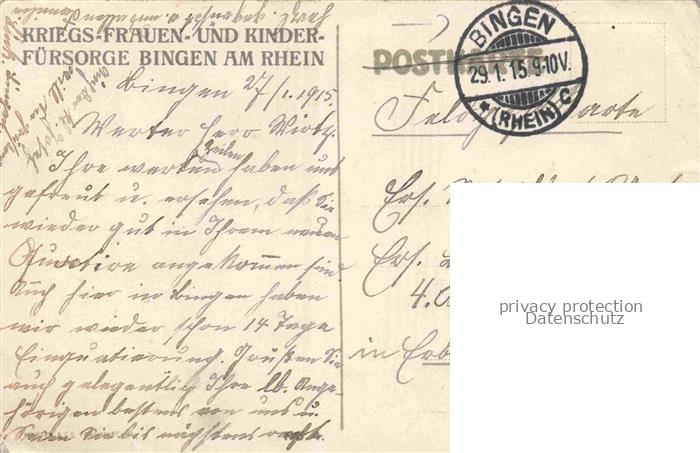 KRIEGS-FRAUEN- UND KINDER-
FÜRSORGE BINGEN AM RHEIN
Bingen 27/1. 1915.
Werter Herr Wirtz
Ihre werten Zeilen haben uns
gefreut u. ersehen, daß Sie
wieder gut in Ihrem neuen
Quartire angekommen sind.
Auch hier in Bingen haben
wir wieder schon 14 Tage
Einquatierung. Grüßen Sie
auch gelegentlich Ihre lb. Ange-
hörigen bestens von uns u.
Seien Sie bis nächstens
POSTKARTE
BINGEN
29.1.15.9-10V.
*(RHEIN)C
Ers.
Ers.
4.
in
privacy protection
Datenschutz